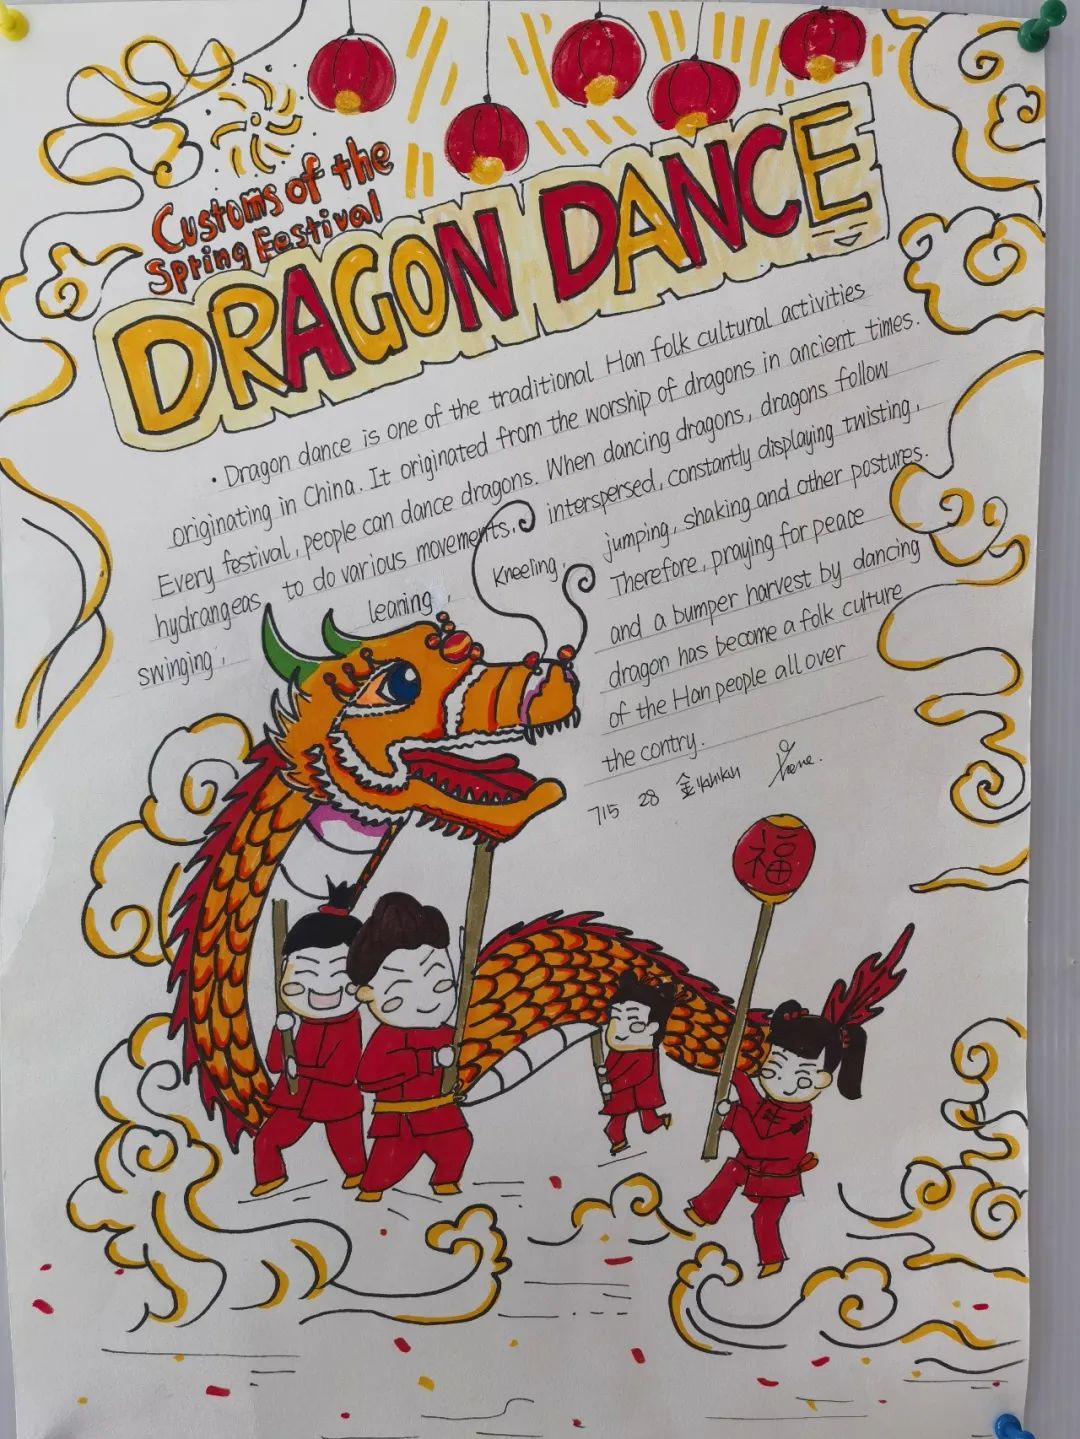 Customs of the
Spring Festival
DRAGON DANCE
· Dragon dance is one of the traditional Han folk cultural activities
originating in China. It originated from the worship of dragons in ancient times.
Every festival, people can dance dragons. When dancing dragons, dragons follow
hydrangeas to do various movements, interspersed, constantly displaying twisting,
swinging, leaning, Kneeling, jumping, shaking and other postures.
Therefore, praying for peace
and a bumper harvest by dancing
dragon has become a folk culture
of the Han people all over
the contry.
715 28 金
福